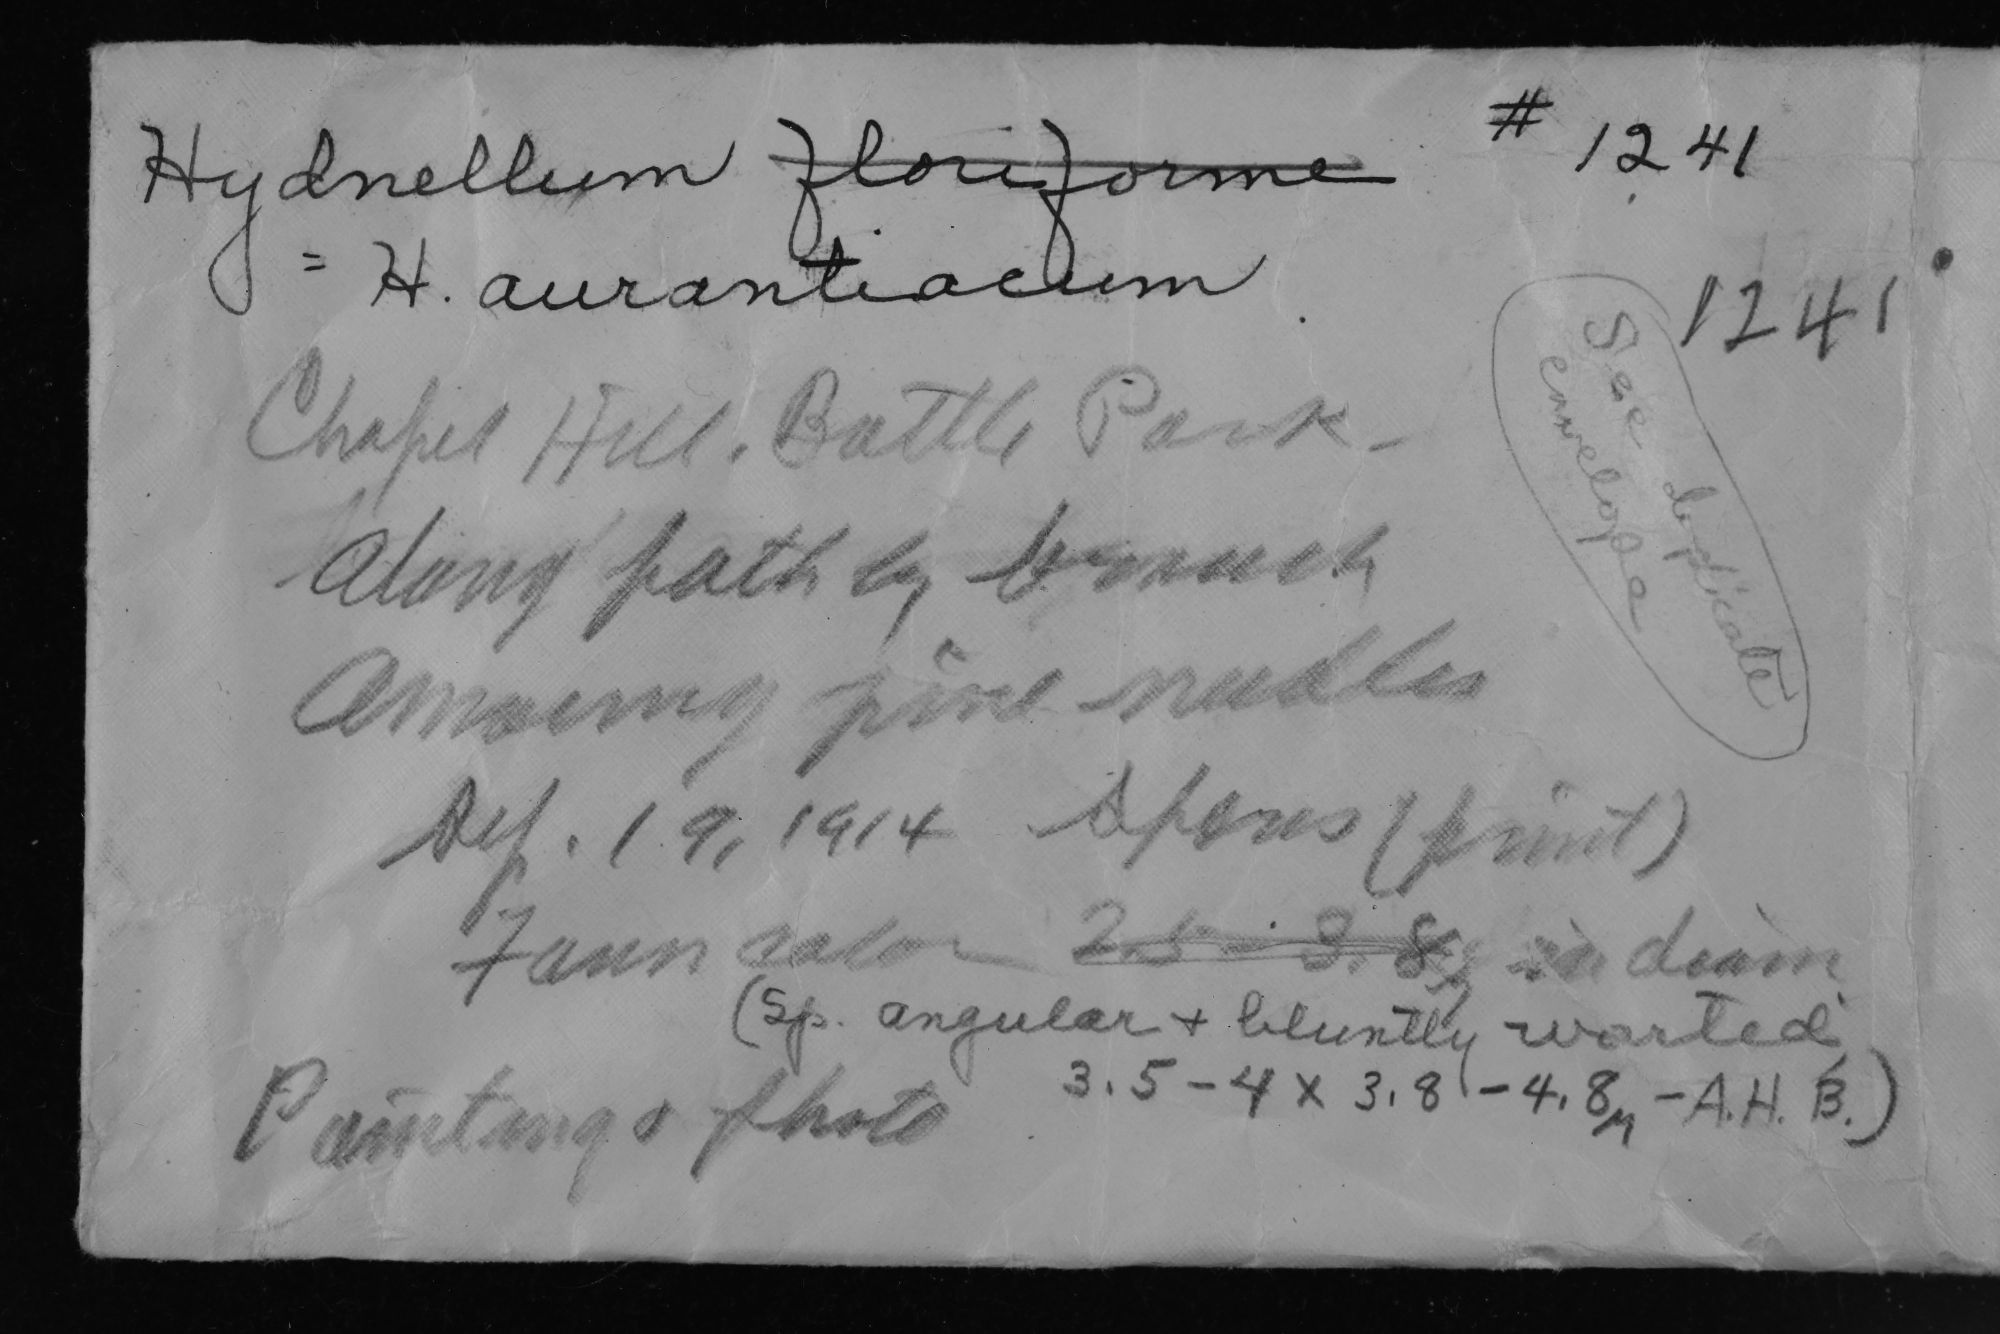 Hydnellum floriforme # 1241
= H. aurantiacum
1241
See duplicate
envelope
Chapel Hill. Battle Park -
Along path by branch
Among pine needles
Sep. 19, 1914 Spores (print)
Fawn color 2.5 - 3.8µ in diam
(Sp. angular + bluntly warted
3.5 - 4 x 3.8 - 4.8µ - A.H.B.)
Painting & photo